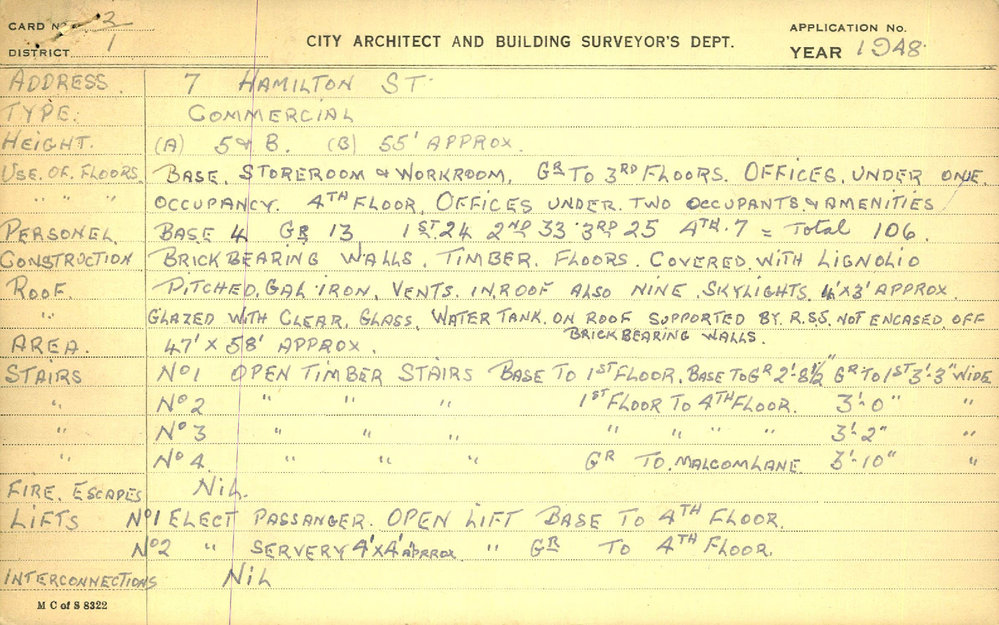 CARD No. 2
DISTRICT 1
CITY ARCHITECT AND BUILDING SURVEYOR'S DEPT.
APPLICATION No.
YEAR 1948
ADDRESS. 7 HAMILTON ST.
TYPE. COMMERCIAL
HEIGHT. (A) 5 & B. (B) 55' APPROX.
USE. OF. FLOORS. BASE. STOREROOM & WORKROOM, GR TO 3RD FLOORS. OFFICES. UNDER ONE
" " " OCCUPANCY. 4TH FLOOR, OFFICES UNDER. TWO OCCUPANTS & AMENITIES
PERSONEL. BASE 4 GR 13 1ST. 24 2ND 33 3RD 25 4TH. 7 = Total 106.
CONSTRUCTION BRICK BEARING WALLS. TIMBER. FLOORS. COVERED. WITH LIGNOLIO
ROOF. PITCHED. GAL IRON, VENTS. IN. ROOF ALSO NINE. SKYLIGHTS. 4'X3' APPROX.
" GLAZED WITH CLEAR, GLASS, WATER TANK. ON ROOF SUPPORTED BY. R.S.S. NOT ENCASED. OFF
BRICK BEARING WALLS.
AREA. 47' X 58' APPROX.
STAIRS No 1 OPEN TIMBER STAIRS BASE TO 1ST FLOOR. BASE TO GR 2'-8½" GR TO 1ST 3'-3" WIDE
" No 2 " " " 1ST FLOOR TO 4TH FLOOR. 3'-0" "
" No 3 " " " " " " " 3'-2" "
" No 4. " " " GR TO. MALCOM LANE 3'-10" "
FIRE. ESCAPES NIL.
LIFTS No 1 ELECT PASSANGER. OPEN LIFT BASE TO 4TH FLOOR.
No 2 " SERVERY 4'X4' APPROX " GR TO 4TH FLOOR.
INTERCONNECTIONS NIL
M C of S 8322